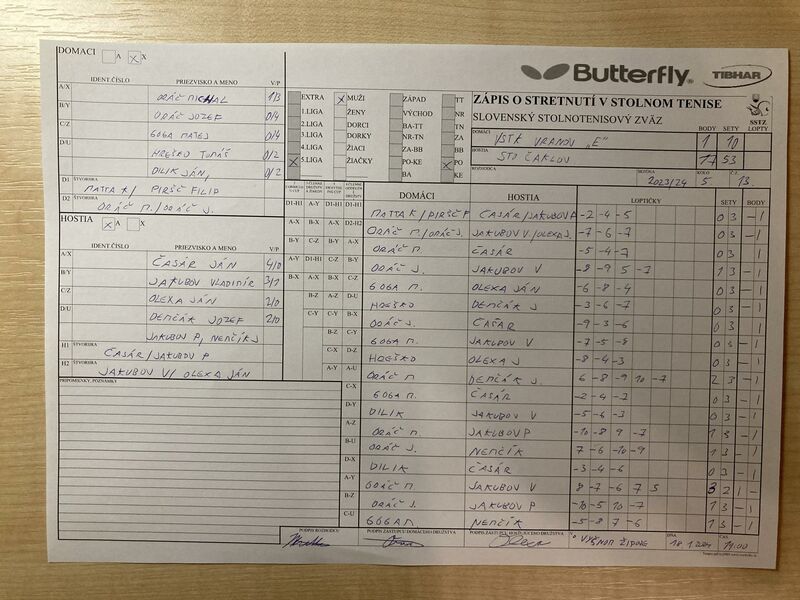 DOMACI A X X
IDENT.ČÍSLO PRIEZVISKO A MENO V/P
A/X ORÁČ MICHAL 1/3
B/Y ORÁČ JOZEF 0/4
C/Z GOGA MATEJ 0/4
D/U HREŠKO TOMÁŠ 0/2
DILIK JÁN, 0/2
D1 ŠTVORHRA MATTA R/ PIRŠČ FILIP
D2 ŠTVORHRA ORÁČ M./ORÁČ J.
HOSTIA X A X
IDENT.ČÍSLO PRIEZVISKO A MENO V/P
A/X ČASÁR JÁN 4/0
B/Y JAKUBOV VLADIMÍR 3/1
C/Z OLEXA JÁN 2/0
D/U DEMČÁK JOZEF 2/0
JAKUBOV P, NEMČÍK J
H1 ŠTVORHRA ČASÁR/JAKUBOV P
H2 ŠTVORHRA JAKUBOV V/ OLEXA JÁN
PRIPOMIENKY, POZNÁMKY
Butterfly TIBHAR
EXTRA X MUŽI ZÁPAD TT
1.LIGA ŽENY VÝCHOD NR
2.LIGA DORCI BA-TT TN
3.LIGA DORKY NR-TN ZA
4.LIGA ŽIACI ZA-BB BB
X 5.LIGA ŽIAČKY PO-KE X PO
BA KE
ZÁPIS O STRETNUTÍ V STOLNOM TENISE
SLOVENSKÝ STOLNOTENISOVÝ ZVÄZ
SSTZ
BODY SETY LOPTY
DOMÁCI VSTK VRANOV „E" 1 10
HOSTIA STO ČAKLOV 17 53
ROZHODCA
SEZÓNA 2023/24 KOLO 5 Č.Z. 13.
DOMÁCI HOSTIA LOPTIČKY SETY BODY
MATTA R/PIRŠČ F ČASÁR/JAKUBOV P -2 -4 -5 0 3 - 1
ORÁČ M./ORÁČ J. JAKUBOV V./OLEXA J. -7 -6 -7 0 3 - 1
ORÁČ M. ČASÁR -5 -4 -7 0 3 - 1
ORÁČ J. JAKUBOV V -8 -9 5 -7 1 3 - 1
GOGA M. OLEXA JÁN -6 -8 -4 0 3 - 1
HREŠKO DEMČÁK J -3 -6 -7 0 3 - 1
ORÁČ J. ČASÁR -9 -3 -6 0 3 - 1
GOGA M. JAKUBOV V -7 -5 -8 0 3 - 1
HREŠKO OLEXA J -8 -4 -3 0 3 - 1
ORÁČ M DEMČÁK J. 6 -8 -9 10 -7 2 3 - 1
GOGA M. ČASÁR -2 -4 -2 0 3 - 1
DILIK JAKUBOV V -5 -6 -3 0 3 - 1
ORÁČ M. JAKUBOV P -10 -8 9 -7 1 3 - 1
ORÁČ J. NEMČÍK 7 -6 -10 -9 1 3 - 1
DILIK ČASÁR -3 -4 -6 0 3 - 1
ORÁČ M. JAKUBOV V 8 -7 -6 7 5 3 2 1 -
ORÁČ J. JAKUBOV P -10 -5 10 -7 1 3 - 1
GOGA M NEMČÍK -5 -8 7 -6 1 3 - 1
PODPIS ROZHODCU PODPIS ZÁSTUPCU DOMÁCEHO DRUŽSTVA PODPIS ZÁSTUPCU HOSŤUJÚCEHO DRUŽSTVA
V DŇA 18.1.2024 ČAS 19:00